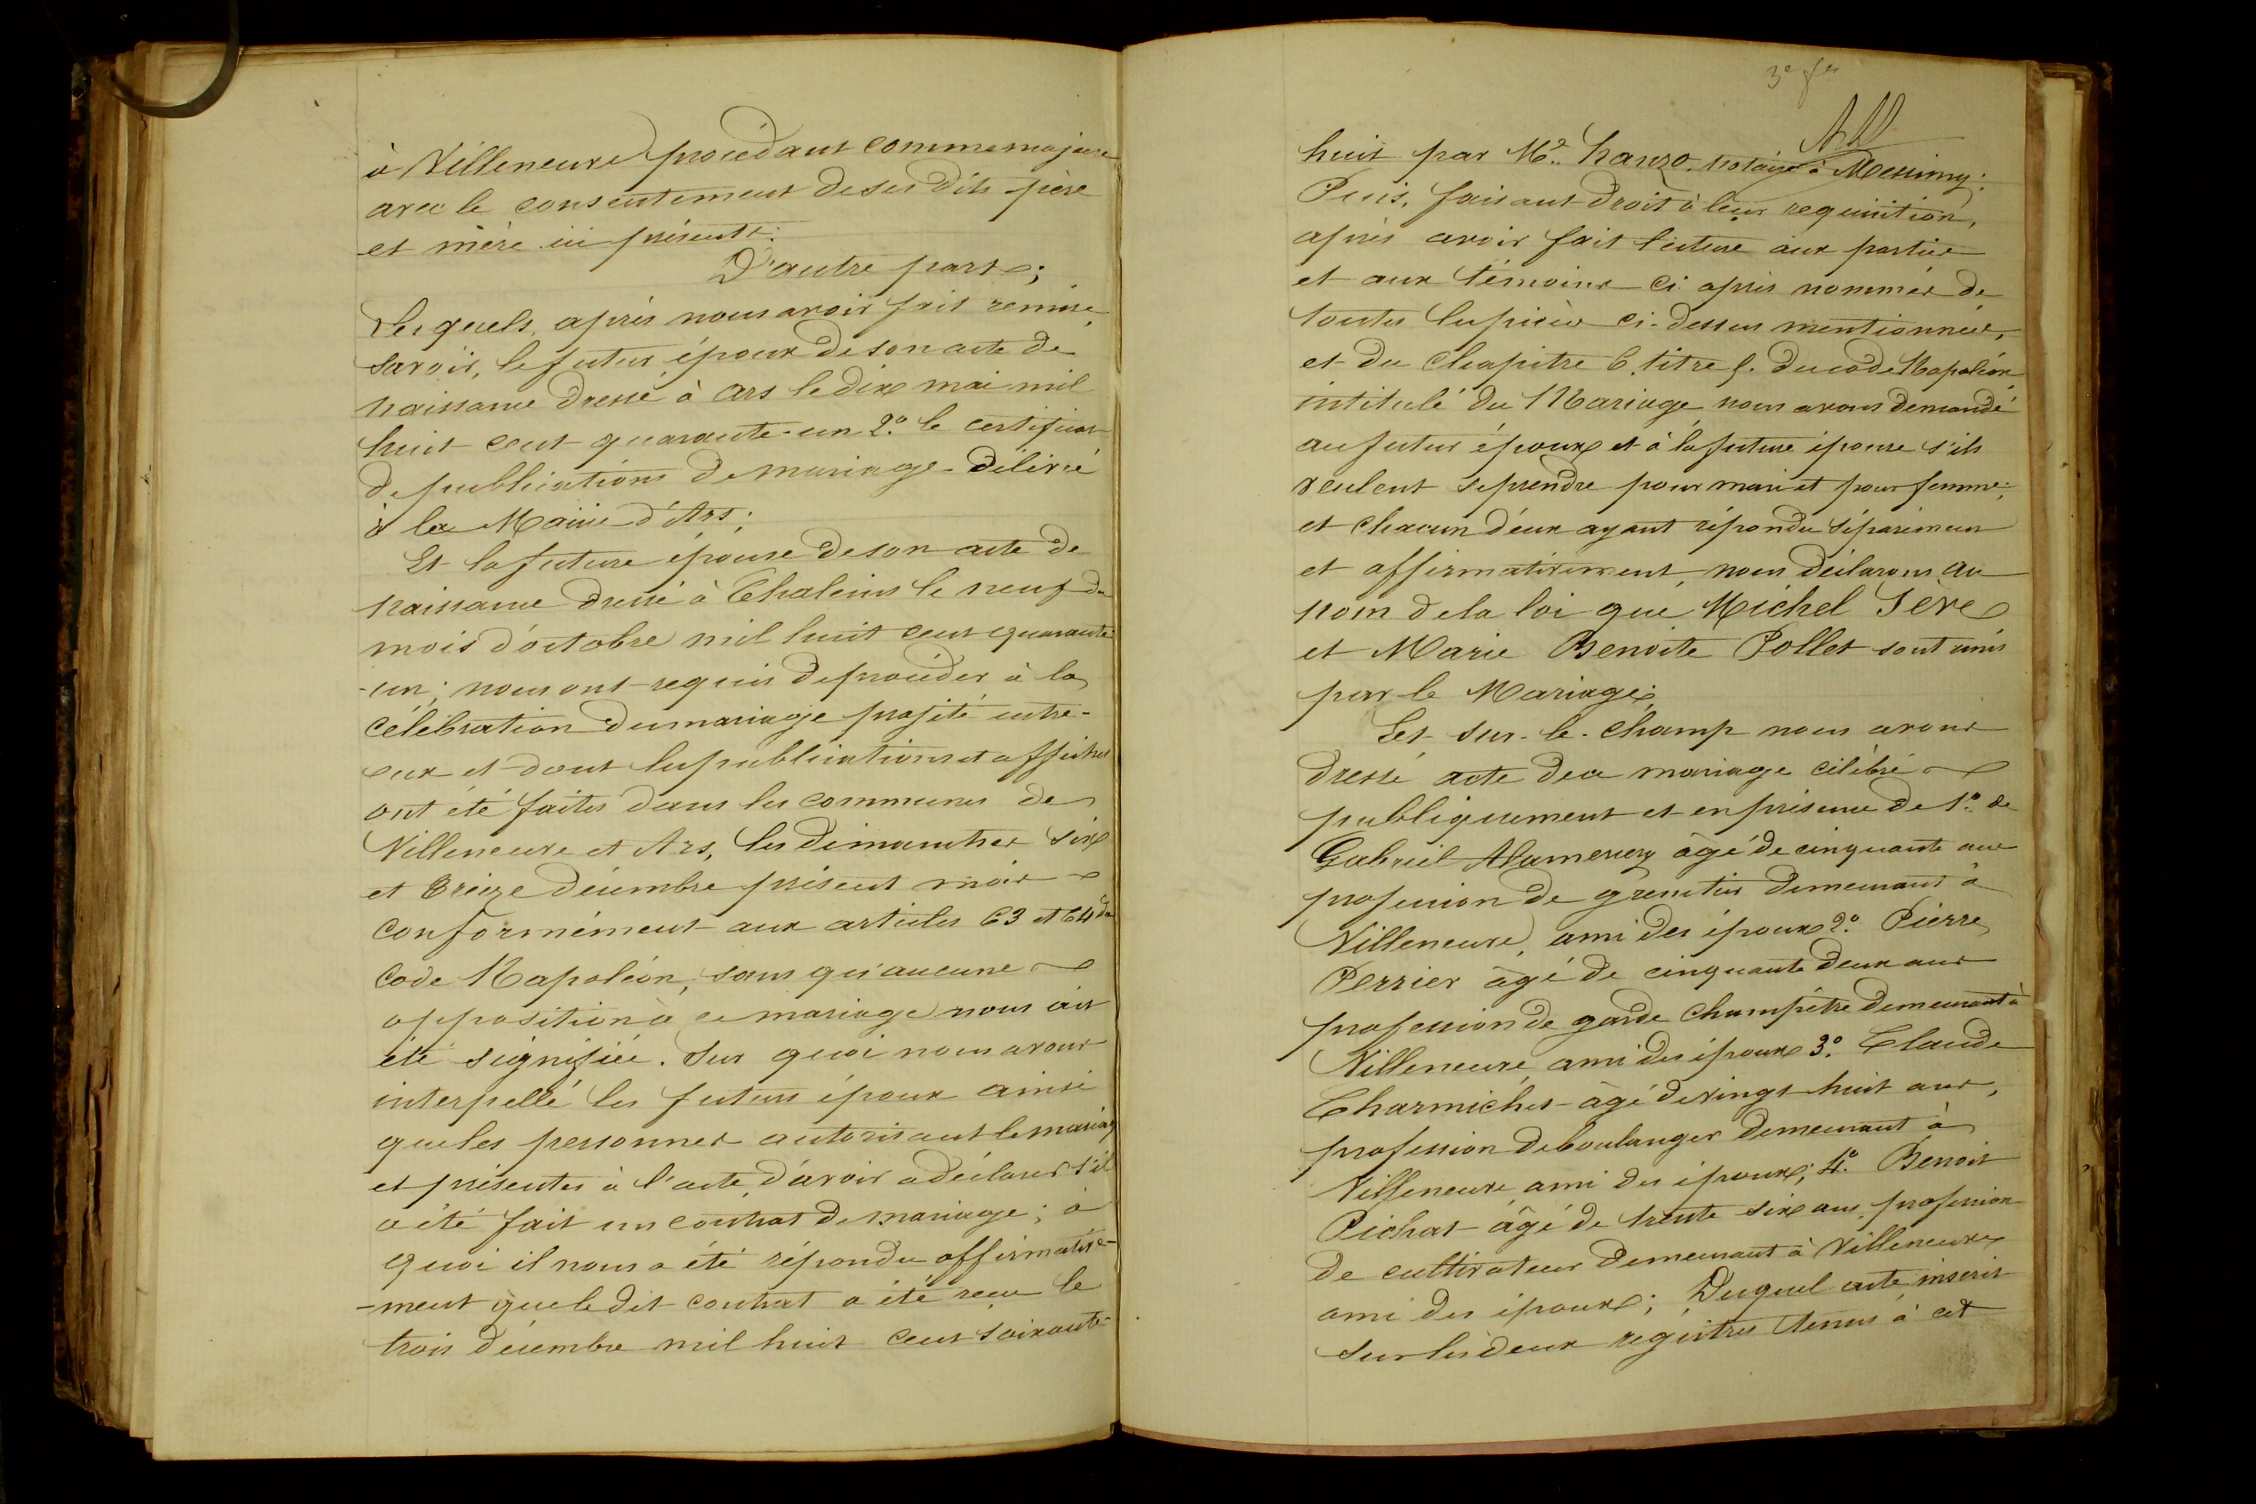 à Villeneuve procédant comme majeure
avec le consentement de ses dits père
et mère ici présents.
D'autre part;
Lesquels, après nous avoir fait remise,
savoir, le futur époux de son acte de
naissance dressé à Ars le dix mai mil
huit cent quarante-un 2.º le certificat
de publications de mariage délivré
à la Mairie d'Ars;
Et la future épouse de son acte de
naissance dressé à Chaleins le neuf du
mois d'octobre mil huit cent quarante
-un; nous ont requis de procéder à la
célébration du mariage projeté entre-
eux et dont les publications et affiches
ont été faites dans les communes de
Villeneuve et Ars, les dimanches six
et treize décembre présent mois
conformément aux articles 63 et 64 du
Code Napoléon, sans qu'aucune
opposition à ce mariage nous ait
été signifiée. Sur quoi nous avons
interpellé les futurs époux ainsi
que les personnes autorisant le mariage
et présentes à l'acte, d'avoir à déclarer s'il
a été fait un contrat de mariage; à
quoi il nous a été répondu affirmative-
-ment que le dit contrat a été reçu le
trois décembre mil huit cent soixante-
3e
huit par Me notaire à Messimy;
Puis, faisant droit à leur requisition,
après avoir fait lecture aux parties
et aux témoins ci après nommés de
toutes les pièces ci-dessus mentionnées,
et du chapitre 6. titre 5. du code Napoléon
intitulé du Mariage nous avons demandé
au futur époux et à la future épouse s'ils
veulent se prendre pour mari et pour femme;
et chacun d'eux ayant répondu séparément
et affirmativement, nous déclarons au
nom de la loi que Michel Seve
et Marie Benoite Pollet sont unis
par le Mariage;
Et sur-le-champ nous avons
dressé acte de ce mariage célébré
publiquement et en présence de 1.º de
Gabriel Alamercery âgé de cinquante ans
profession de demeurant à
Villeneuve, ami des époux 2.º Pierre
Perrier âgé de cinquante deux ans
profession de garde champêtre demeurant à
Villeneuve ami des époux 3.º Claude
Charmichet âgé de vingt-huit ans,
profession de boulanger demeurant à
Villeneuve ami des époux; 4.º Benoit
Pichat âgé de trente six ans profession
de cultivateur demeurant à Villeneuve
ami des époux; Duquel acte, inscrit
sur les deux registres tenus à cet